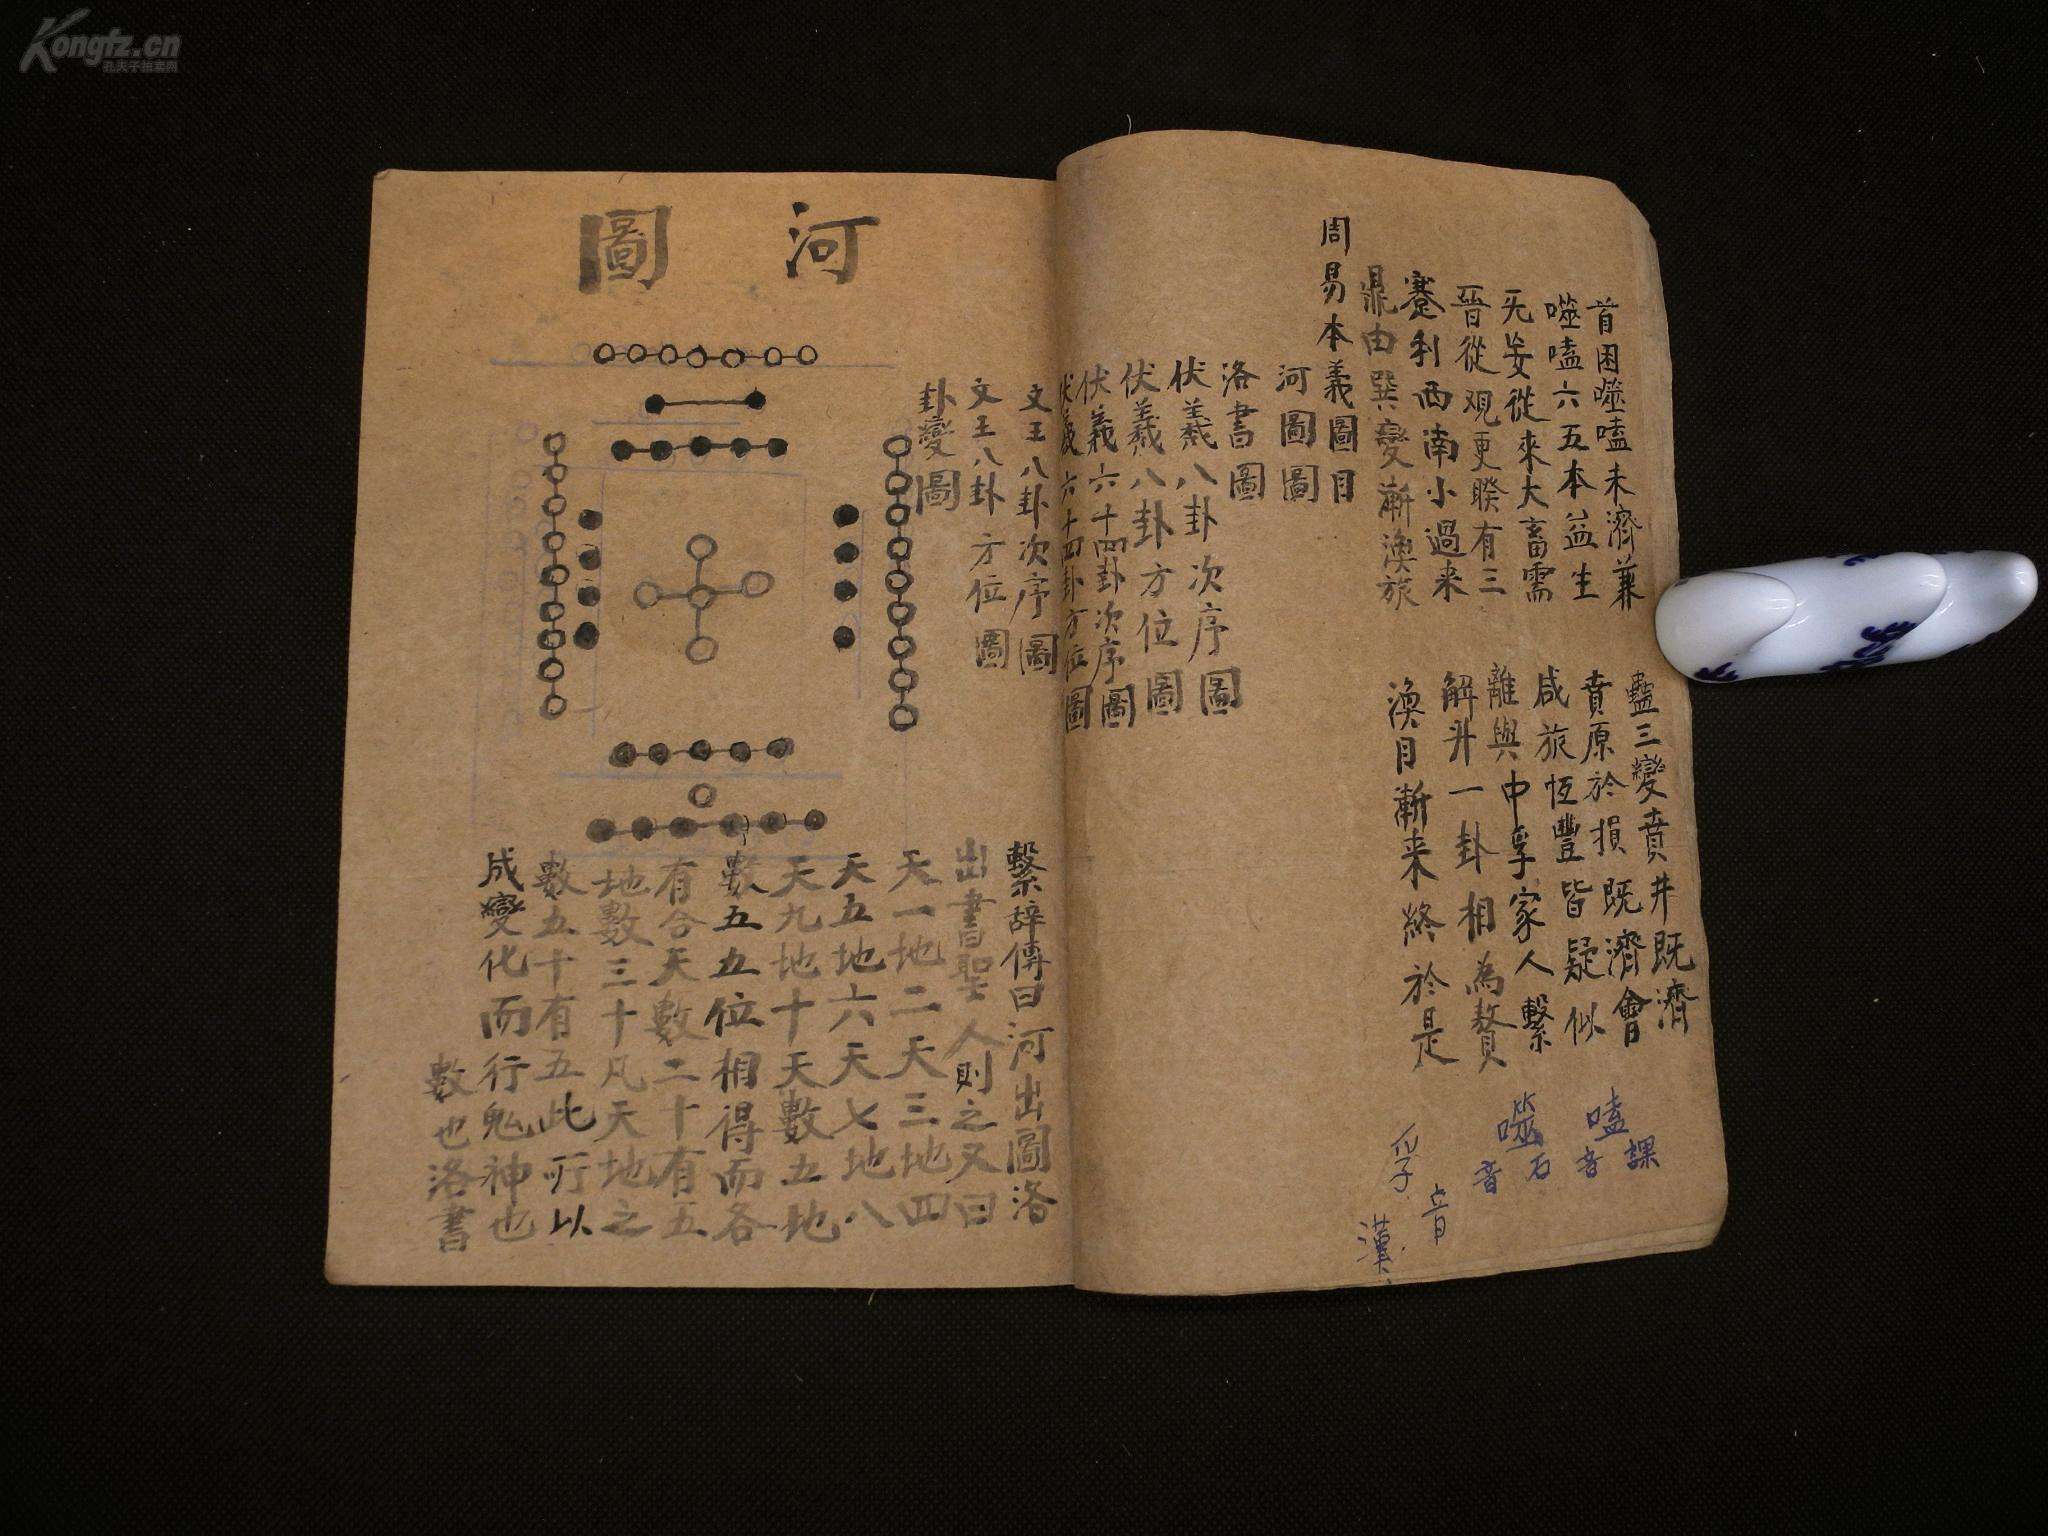 Kongfz.cn
孔夫子拍卖网
首困噬嗑未濟兼 蠱三變賁井既濟
噬嗑六五本益生 賁原於損既濟會
无妄從來大畜需 咸旅恆豐皆疑似
晉從观更睽有三 離與中孚家人繫
蹇利西南小過来 解升一卦相為贅
鼎由巽變漸渙旅 渙目漸来終於是
嗑音課
噬音石
孚音漢
周易本義圖目
河圖圖
洛書圖
伏羲八卦次序圖
伏羲八卦方位圖
伏羲六十四卦次序圖
伏羲六十四卦方位圖
文王八卦次序圖
文王八卦方位圖
卦變圖
河圖
繫辭傳曰河出圖洛
出書聖人則之又曰
天一地二天三地四
天五地六天七地八
天九地十天數五地
數五五位相得而各
有合天數二十有五
地數三十凡天地之
數五十有五此所以
成變化而行鬼神也
數也洛書